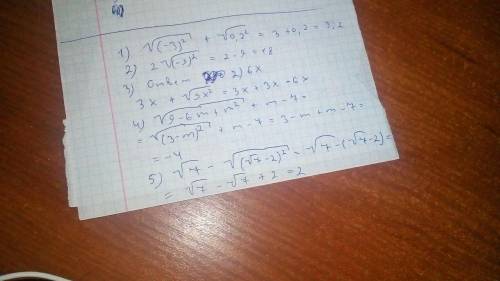 1) √(-3)² + √0,2² = 3 + 0,2 = 3,2
2) 2√(-9)² = 2 · 9 = 18
3) Ответ 2) 6x
3x + √9x² = 3x + 3x = 6x
4) √9 - 6m + m² + m - 7 =
= √(3-m)² + m - 7 = 3 - m + m - 7 =
= -4
5) √7 - √(√7-2)² = √7 - (√7-2) =
= √7 - √7 + 2 = 2